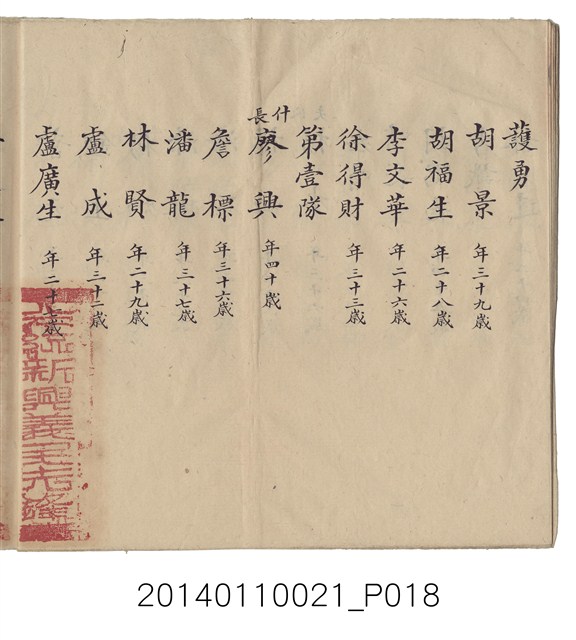 護勇
胡景 年三十九歲
胡福生 年二十八歲
李文華 年二十六歲
徐得財 年三十三歲
第壹隊
什長 廖興 年四十歲
詹標 年三十六歲
潘龍 年三十七歲
林賢 年二十九歲
盧成 年三十二歲
盧廣生 年二十七歲
20140110021_P018